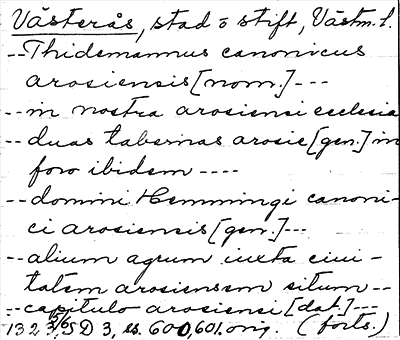 Västerås, stad o stift, Västm. l.
-- Thidemannus canonicus
arosiensis [nom.] ---
-- in nostra arosiensi ecclesia
-- duas tabernas arosie [gen.] in
foro ibidem ----
-- domini Hemmingi canoni-
ci arosiensis [gen.] ---
-- alium agrum iuxta ciui-
tatem arosiensem situm --
-- capitulo arosiensi [dat.] ---
1323 5/6 SD 3, s. 600, 601. orig. (forts.)